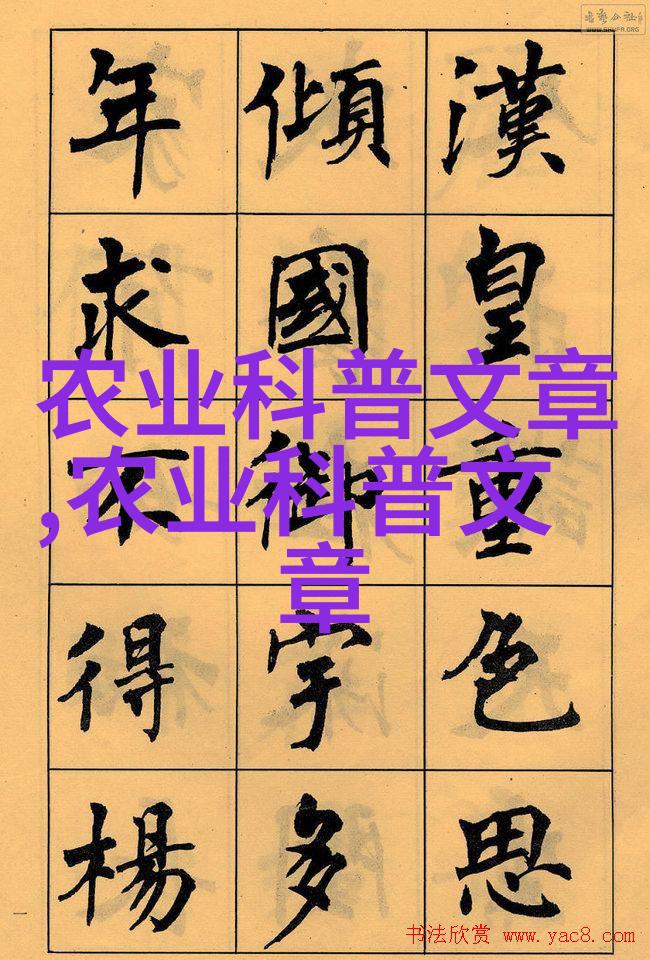 漢皇重色思
傾國御宇多
年求不得楊
农业科普文章
,农业科普文
章
一
WWW.SHUFA.ORG
书法欣赏 www.yac8.com